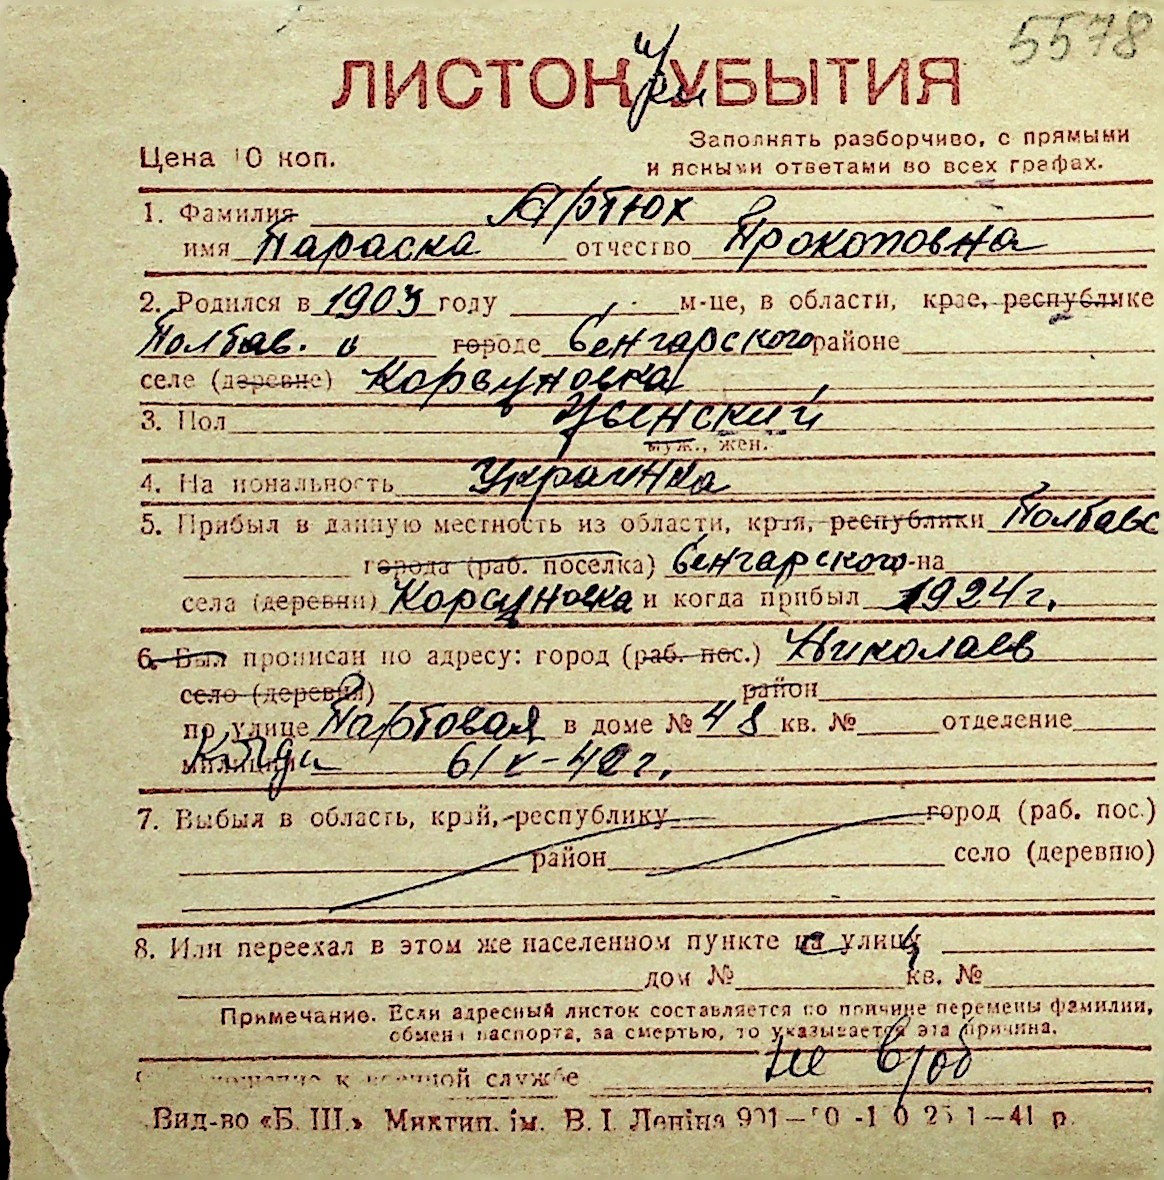 5578
ЛИСТОК УБЫТИЯ
Заполнять разборчиво, с прямыми
Цена 10 коп.
и ясными ответами во всех графах.
1. Фамилия Артюх
имя Параска отчество Прокоповна
2. Родился в 1903 году м-це, в области, крае, республике
Полтав. в городе Сенчарского районе
селе (деревне) Корсуновка
3. Пол Женский
муж., жен.
4. На иональность Украинка
5. Прибыл в данную местность из области, края, республики Полтавс
города (раб. поселка) Сенчарского р-на
села (деревни) Корсуновка и когда прибыл 1924 г.
6. Был прописан по адресу: город (раб. пос.) Николаев
село (деревня) район
по улице Портовая в доме № 48 кв. № отделение
милиции 6/V-42 г.
7. Выбыл в область, край, республику город (раб. пос.)
район село (деревню)
8. Или переехал в этом же населенном пункте на улицу
дом № кв. №
Примечание. Если адресный листок составляется по причине перемены фамилии,
обмена паспорта, за смертью, то указывается эта причина.
не в/об
к военной службе
Вид-во «Б. Ш.» Миктип. ім. В. І. Леніна 41 р.